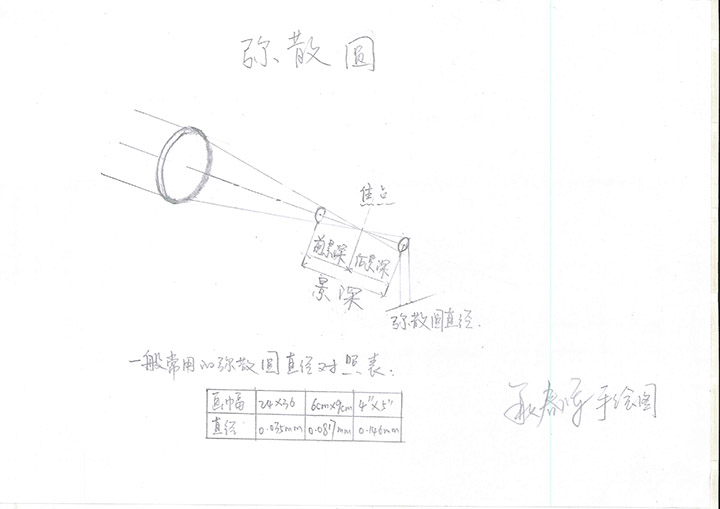 弥散圆
焦点
前景深 后景深
景深
弥散圆直径.
一般常用的弥散圆直径对照表:
画幅 24×36 6cm×9cm 4"×5"
直径 0.035mm 0.087mm 0.146mm
手绘图